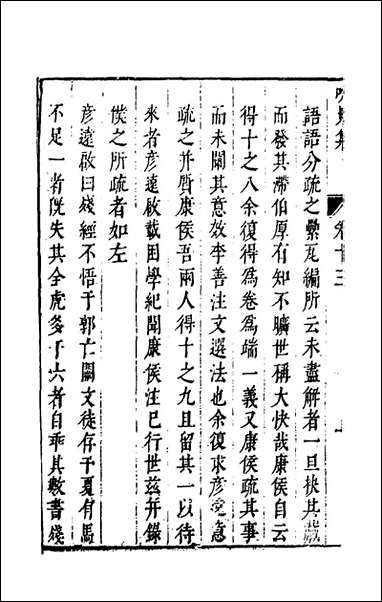 語語分疏之槩瓦編所云未盡解者一旦抉其藏
而發其滯伯厚有知不曠世稱大快哉康侯自云
得十之八余復得爲卷爲端一義又康侯疏其事
而未闡其意效李善注文選法也余復求彥遠意
疏之并質康侯吾兩人得十之九且留其一以待
來者彥遠啟載困學紀聞康侯注已行世茲并錄
僕之所疏者如左
彥遠啟曰殘經不悟于郭亡闕文徒存于夏有馬
不足一者旣失其全虎多于六者自乖其數書殘
集
卷十三